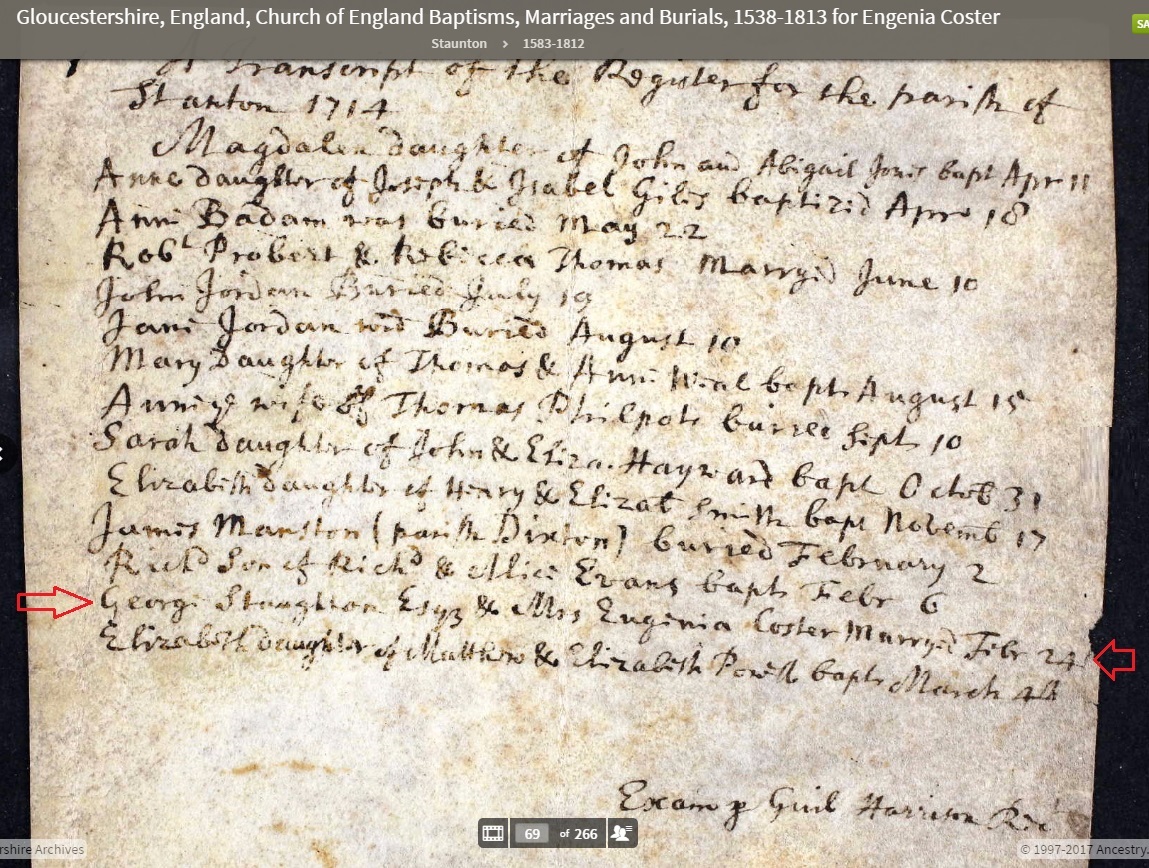 Gloucestershire, England, Church of England Baptisms, Marriages and Burials, 1538-1813 for Engenia Coster
SA
Staunton › 1583-1812
A Transcript of the Register for the parish of
Stanton 1714
Magdalen daughter of John and Abigail Jones bapt Apr 11
Anne daughter of Joseph & Isabel Giles baptized Apr 18
Anne Badam was buried May 22
Robt Probert & Rebecca Thomas Marryed June 10
John Jordan Buried July 19
Jane Jordan wid Buried August 10
Mary Daughter of Thomas & Anne Weal bapt August 15
Anne ye wife of Thomas Philpots buried Sept 10
Sarah daughter of John & Eliza. Hayward bapt Octob 31
Elizabeth daughter of Henry & Elizab Smith bapt Novemb 17
James Manston (parish Dixton) buried February 2
Richd Son of Richd & Alice Evans bapt Febr 6
George Staughton Esqr & Mrs Euginia Coster Marryed Febr 24
Elizabeth daughter of Matthew & Elizabeth Powell bapt March 4th
Exam p Guil Harrison Rec
69 of 266
rshire Archives
© 1997-2017 Ancestry.